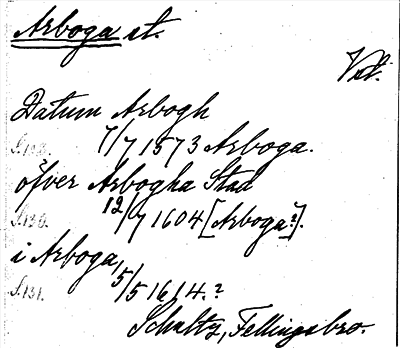 Arboga st.
Vstl.
Datum Arbogh
S.129. 7/7 1573 Arboga.
öfver Arbogha Stad
S.130. 12/7 1604 [Arboga?].
i Arboga,
S.131. 5/5 1614.?
Schultz, Fellingsbro.